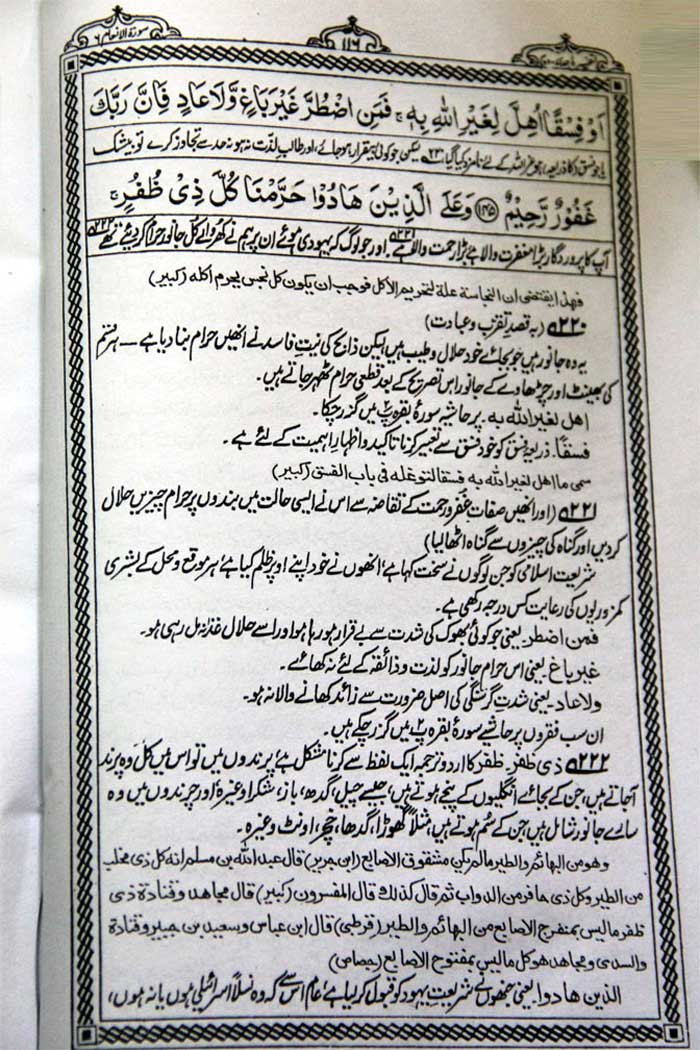 سورة الانعام ٦
١١٦
اَوْ فِسْقًا اُهِلَّ لِغَيْرِ اللّٰهِ بِهٖ ۚ فَمَنِ اضْطُرَّ غَيْرَ بَاغٍ وَّلَا عَادٍ فَاِنَّ رَبَّكَ
یا جو فسق (کا ذریعہ) ہو، غیر اللہ کے لئے نامزد کیا گیا لیکن جو کوئی بیقرار ہو جائے، اور طالب لذت نہ ہو نہ حد سے تجاوز کرے تو بیشک
غَفُوْرٌ رَّحِيْمٌ ﴿١٤٥﴾ وَعَلَى الَّذِيْنَ هَادُوْا حَرَّمْنَا كُلَّ ذِيْ ظُفُرٍ ۚ
آپ کا پروردگار بڑا مغفرت والا ہے بڑا رحمت والا ہے ۲۲۱ اور جو لوگ کہ یہودی ہوئے ان پر ہم نے کھر والے کل جانور حرام کر دیئے تھے ۲۲۲
فهذا يقتضى ان النجاسة علة لتحريم الاكل فوجب ان يكون كل نجس يحرم اكله (كبير)
۲۲۰ (بہ قصد تقرب و عبادت)
یہ وہ جانور ہیں جو بجائے خود حلال و طیب ہیں لیکن ذابح کی نیت فاسد نے انھیں حرام بنا دیا ہے ــ ہر قسم
کی بھینٹ اور چڑھاوے کے جانور اس تصریح کے بعد قطعی حرام ٹھہر جاتے ہیں۔
اهل لغير الله به۔ پر حاشیہ سورۂ بقرہ پ۲ میں گزر چکا۔
فسقاً۔ ذریعۂ فسق کو خود فسق سے تعبیر کرنا تاکید و اظہار اہمیت کے لئے ہے۔
سمى ما اهل لغير الله به فسقا لتوغله فى باب الفسق (كبير)
۲۲۱ (اور انھیں صفات غفر و رحمت کے تقاضہ سے اس نے ایسی حالت میں بندوں پر حرام چیزیں حلال
کر دیں اور گناہ کی چیزوں سے گناہ اٹھا لیا)
شریعت اسلامی کو جن لوگوں نے سخت کہا ہے، انھوں نے خود اپنے اوپر ظلم کیا ہے، ہر موقع و محل کے بشری
کمزوریوں کی رعایت کس درجہ رکھی ہے۔
فمن اضطر۔ یعنی جو کوئی بھوک کی شدت سے بے قرار ہو رہا ہو اور اسے حلال غذا نہ مل رہی ہو۔
غیر باغ یعنی اس حرام جانور کو لذت و ذائقہ کے لئے نہ کھائے۔
ولا عاد۔ یعنی شدت گرسنگی کی اصل ضرورت سے زائد کھانے والا نہ ہو۔
ان سب فقروں پر حاشیے سورۂ بقرہ پ۲ میں گزر چکے ہیں۔
۲۲۲ ذی ظفر۔ ظفر کا اردو ترجمہ ایک لفظ سے کرنا مشکل ہے، پرندوں میں تو اس میں کل وہ پرند
آجاتے ہیں، جن کے بجائے انگلیوں کے پنجے ہوتے ہیں، جیسے چیل، گدھ، باز، شکرا وغیرہ اور چرندوں میں وہ
سارے جانور شامل ہیں جن کے سم ہوتے ہیں، مثلاً گھوڑا، گدھا، خچر، اونٹ وغیرہ۔
وهو من البهائم والطير مالم يكن مشقوق الاصابع (ابن جرير) قال عبد الله بن مسلم انه كل ذى مخلب
من الطير وكل ذى حافر من الدواب ثم قال كذلك قال المفسرون (كبير) قال مجاهد وقتادة ذى
ظفر ماليس بمنفرج الاصابع من البهائم والطير (قرطبى) قال ابن عباس وسعيد بن جبير وقتادة
والسدى ومجاهد هو كل ماليس بمفتوح الاصابع (جصاص)
الذين هادوا یعنی جنھوں نے شریعت یہود کو قبول کر لیا ہے، عام اس سے کہ وہ نسلاً اسرائیلی ہوں یا نہ ہوں،